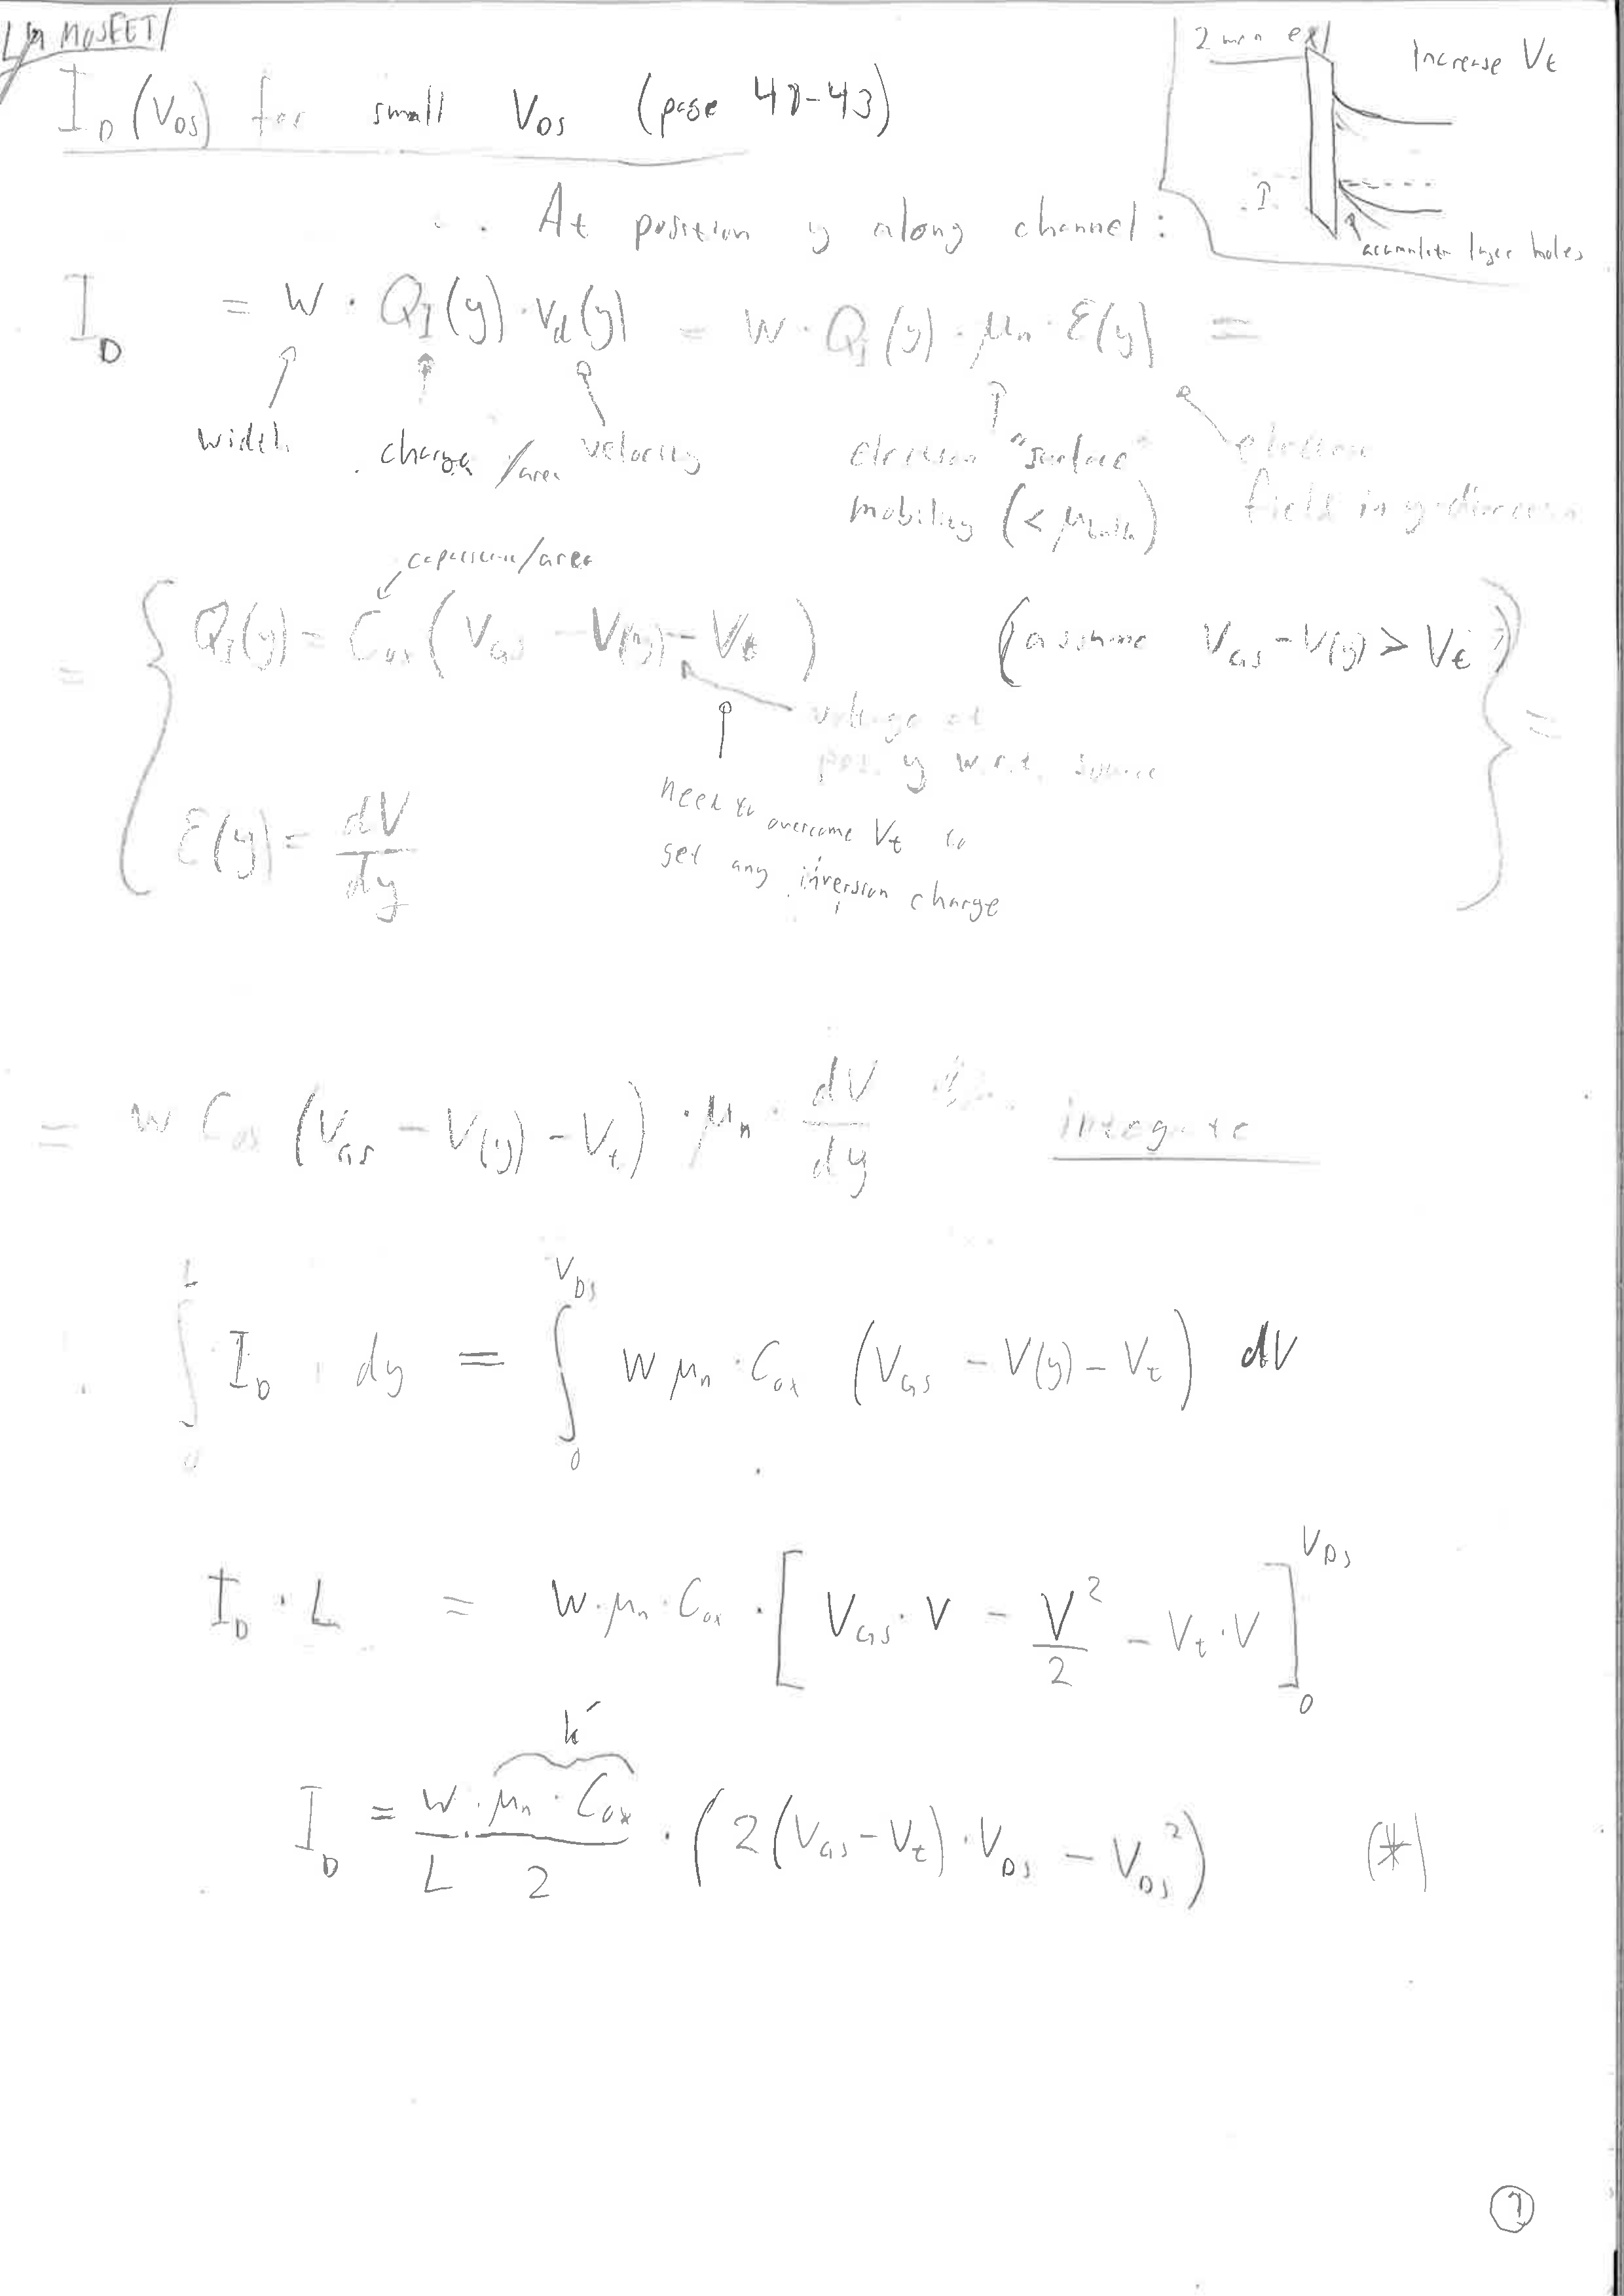 MOSFET
I_D (V_DS) for small V_DS (page 41-43)
2 min ex
Increase V_t
accumulation layer holes
At position y along channel:
I_D = W · Q_I(y) · v_d(y) = W · Q_I(y) · μ_n · ℰ(y) =
width charge/area velocity electron "surface" mobility (< μ_bulk) electric field in y-direction
capacitance/area
= { Q_I(y) = C_ox (V_GS - V(y) - V_t) (assume V_GS - V(y) > V_t) } =
voltage at
pos. y w.r.t. source
need to overcome V_t to
get any inversion charge
ℰ(y) = dV/dy
= W C_ox (V_GS - V(y) - V_t) · μ_n · dV/dy integrate
∫_0^L I_D · dy = ∫_0^{V_DS} W μ_n · C_ox (V_GS - V(y) - V_t) dV
I_D · L = W · μ_n · C_ox · [V_GS · V - V²/2 - V_t · V]_0^{V_DS}
k'
I_D = W/L · μ_n · C_ox/2 · (2(V_GS - V_t) · V_DS - V_DS²) (*)